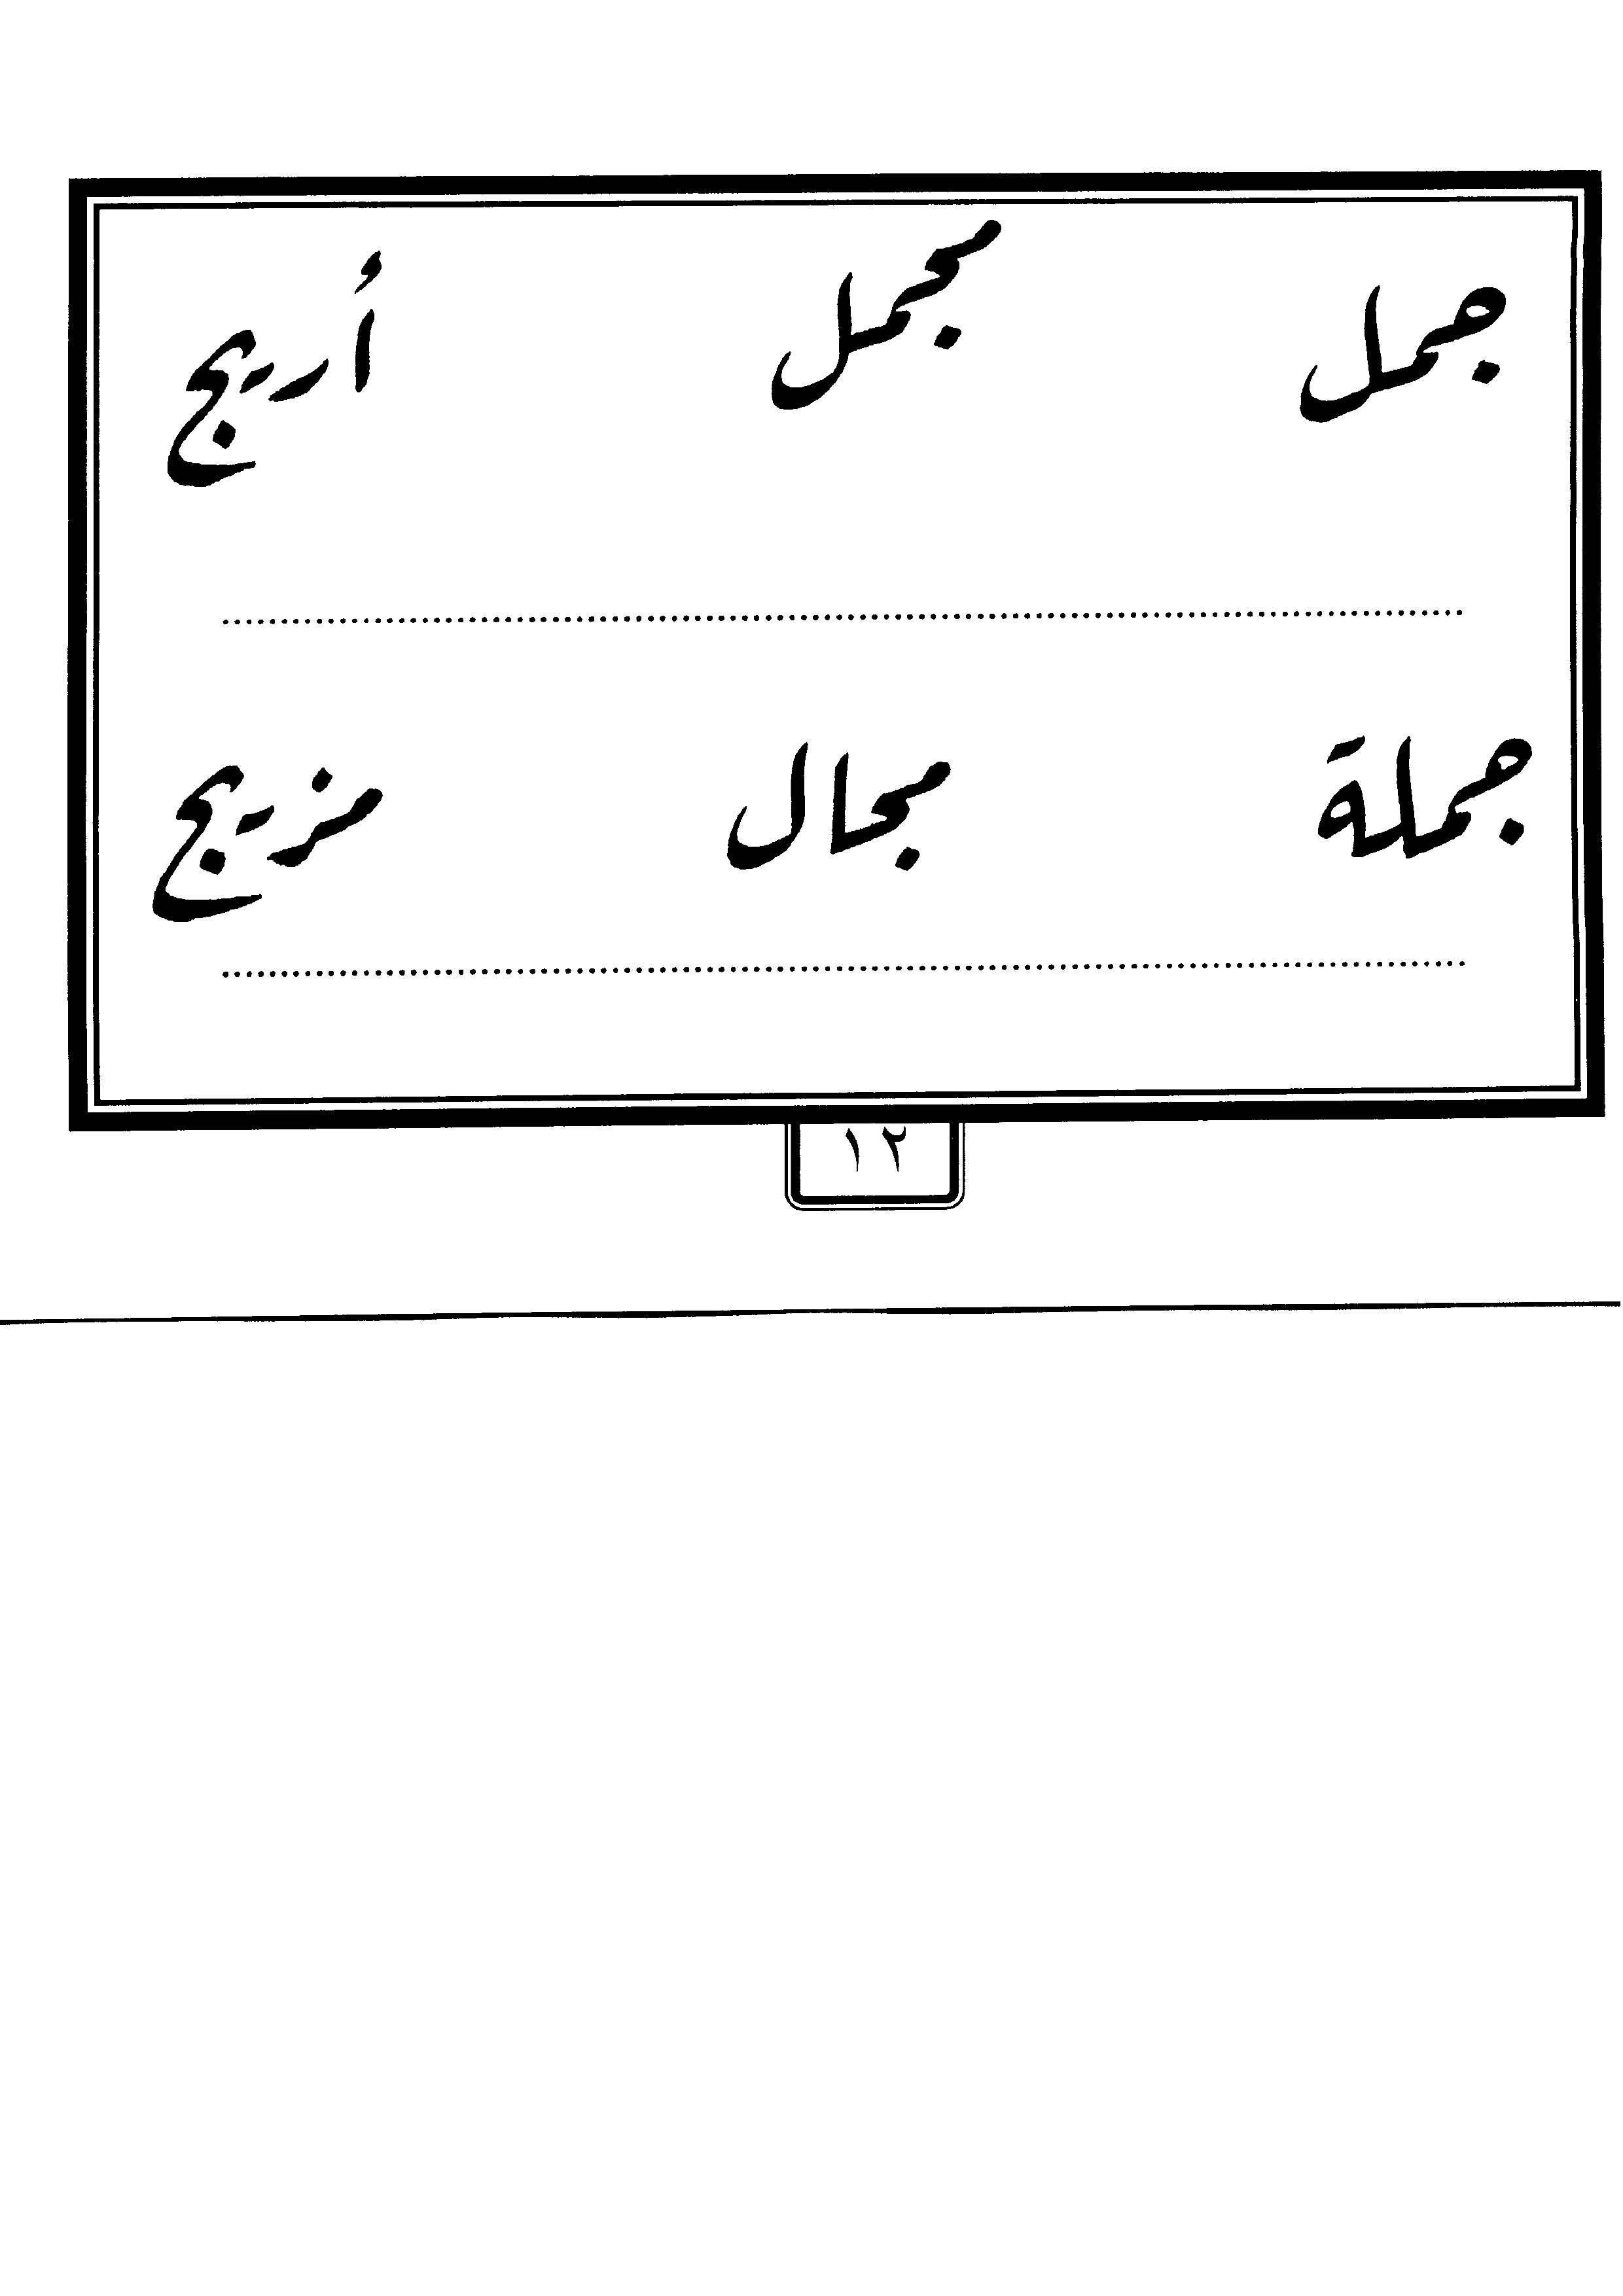 جمل مجمل أريج
جملة مجال مزيج
١٢